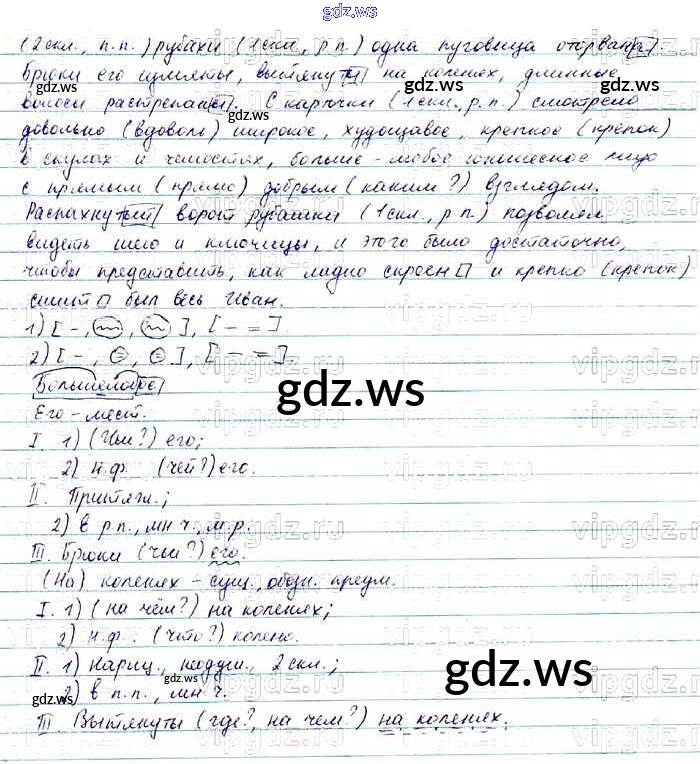 gdz.ws
(2скл., п.п.) рубахи (1скл., р.п.) одна пуговица оторвана.
Брюки его измяты, вытянуты на коленях, длинные
волосы растрепаны. С карточки (1скл., р.п.) смотрело
довольно (вдоволь) широкое, худощавое, крепкое (крепок)
в скулах и челюстях, больше-любое юношеское лицо
с прямым (прямо) добрым (каким?) взглядом.
Распахнутый ворот рубашки (1скл., р.п.) позволял
видеть шею и ключицы, и этого было достаточно,
чтобы представить, как ладно скроен и крепко (крепок)
сшит был весь Иван.
1) [ – , ~ , ~ ], [ – = ].
2) [ – , = , = ], [ – = ].
Большелобое
Его – мест.
I. 1) (Чьи?) его;
2) н.ф. (чей?) его.
II. Притяж.;
2) в р.п., мн.ч., м.р.
III. Брюки (чьи?) его.
(На) коленях – сущ., обозн. предм.
I. 1) (на чём?) на коленях;
2) н.ф. (что?) колено.
II. 1) Нариц., неодуш., 2скл.;
2) в п.п., мн.ч.
III. Вытянуты (где?, на чем?) на коленях.
gdz.ws